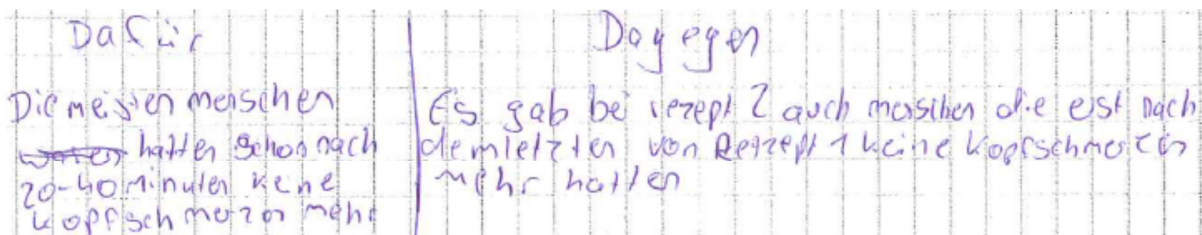 Dafür
Die meisten menschen
waren hatten schon nach
20-40 minuten kene
kopfschmerzen mehr
Dagegen
Es gab bei rezept 2 auch menschen die erst nach
dem letzten von Retzept 1 keine kopfschmerzen
mehr hatten